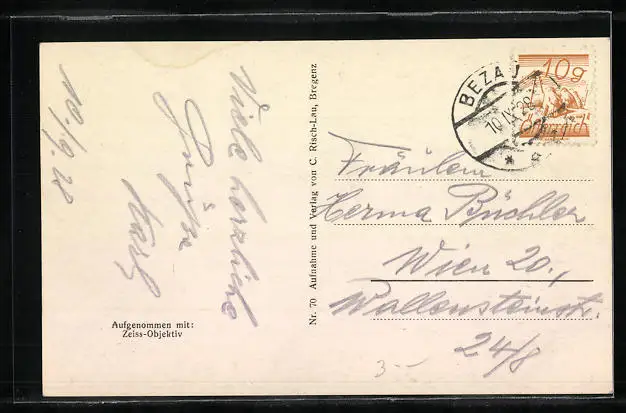 10./9. 28
Viele herzliche
Grüße
Aufgenommen mit:
Zeiss-Objektiv
Nr. 70 Aufnahme und Verlag von C. Risch-Lau, Bregenz
BEZAU
10 IX 28
10 g
Österreich
Fräulein
Herma Büchler
Wien 20.,
Wallensteinstr.
24/8
3.-